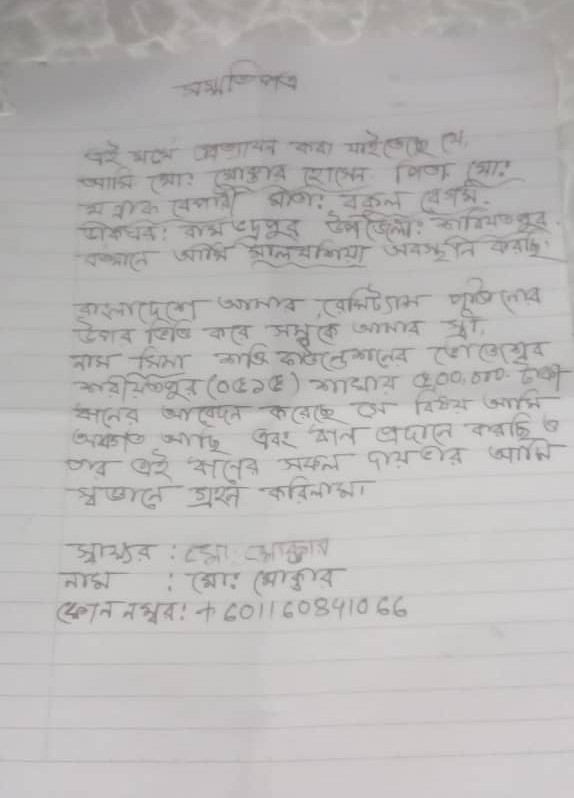 সম্মতিপত্র
এই মর্মে প্রত্যয়ন করা যাইতেছে যে,
আমি মো: মোক্তার হোসেন পিতা মো:
বেপারী মাতা: বকুল বেগম.
ডাকঘর: রামভদ্রপুর উপজেলা: শরিয়তপুর.
বর্তমানে আমি মালয়শিয়া অবস্থান করছি।
বাংলাদেশে আমার রেমিট্যান্স পাঠানোর
উপর ভিত্তি করে সম্পর্কে আমার স্ত্রী,
নাম শক্তি ফাউন্ডেশনের ভোজেশ্বর
শরীয়তপুর (০৫১৫) শাখার ৫০০,০০০ টাকা
ঋনের আবেদন করেছে সে বিষয় আমি
অবগত আছি এবং ঋন প্রদানে করছি ও
তার এই ঋনের সকল দায়ভার আমি
স্বজ্ঞানে গ্রহন করিলাম।
স্বাক্ষর : মো: মোক্তার
নাম : মো: মোক্তার
ফোন নম্বর: +601160841066